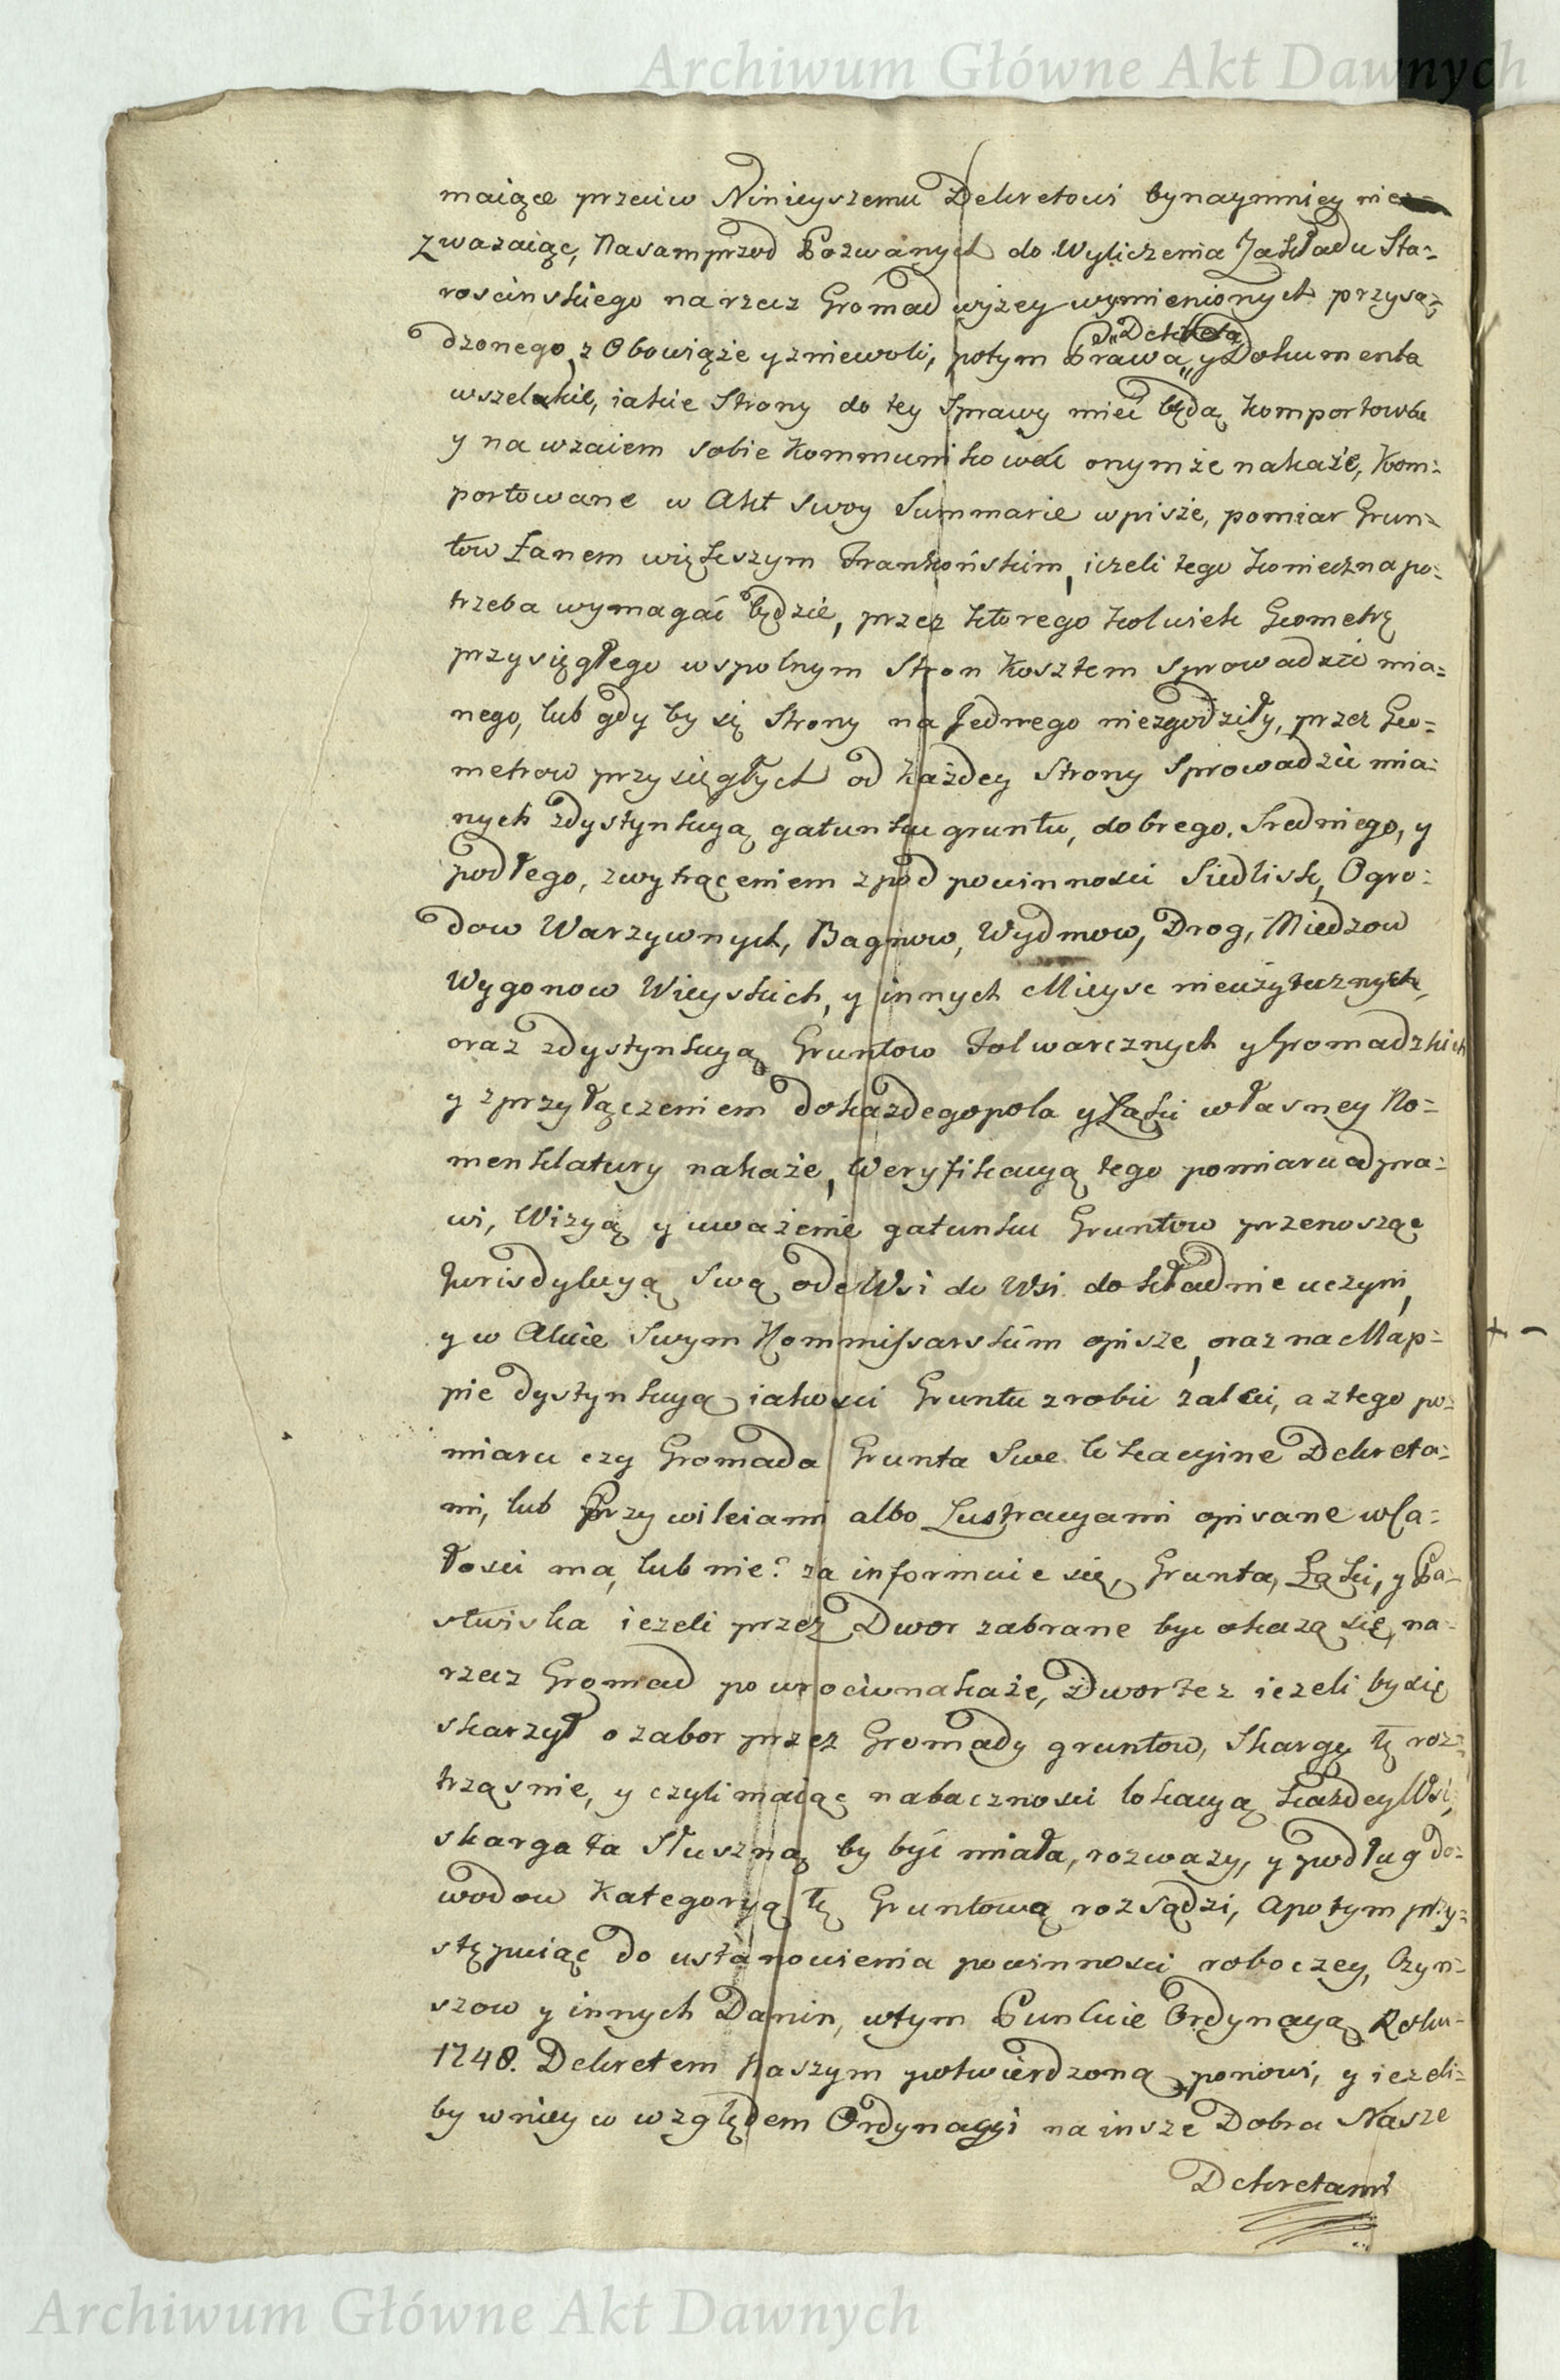 Archiwum Główne Akt Dawnych
maiące przeciw Ninieyszemu Dekretowi bynaymniey nie=
zwazaiąc, Nasamprzod Pozwanych do Wyliczenia Zakładu Sta=
roscinskiego na rzecz Gromad wyżey wymienionych przysą=
dzonego, z Obowiąże y zniewoli, potym Prawa, y Dokumenta
Dekreta
wszelakie, iakie Strony do tey Sprawy mieć będą komportować
y nawzaiem sobie Kommunikować onymże nakaże, Kom=
portowane w Akt swoy Summarie wpisze, pomiar Grun=
tow Łanem większym Frankońskim, ieżeli tego konieczna po=
trzeba wymagać będzie, przez ktorego kolwiek Geometrę
przysięgłego wspolnym Stron Kosztem sprowadzić mia=
nego, lub gdy by się Strony na Jednego niezgodziły, przez Geo=
metrow przysięgłych od każdey Strony Sprowadzić mia=
nych zdystynkcyą gatunku gruntu, dobrego, Sredniego, y
podłego, zwytrąceniem z pod powinnosci Siedlisk, Ogro=
dow Warzywnych, Bagnow, Wydmow, Drog, Miedzow
Wygonow Wieyskich, y innych Mieysc nieużytecznych,
oraz zdystynkcyą Gruntow Folwarcznych y Gromadzkich
y zprzyłączeniem do każdego pola y Łąki własney No=
menklatury nakaże, Weryfikacyą tego pomiaru odpra=
wi, Wizyą y uważenie gatunku Gruntow przenosząc
Jurisdykcyą Swą ode Wsi do Wsi dokładnie uczyni,
y w Akcie Swym Kommissarskim opisze, oraz na Map=
pie dystynkcyą iakosci Gruntu zrobić zaleci, a z tego po=
miaru czy Gromada Grunta Swe lokacyine Dekreta=
mi, lub Przywileiami albo Lustracyami opisane w Ca=
łosci ma, lub nie? za informuie się, Grunta, Łąki, y Pa=
stwiska ieżeli przez Dwor zabrane być okażą się, na=
rzecz Gromad powrocić nakaże, Dwor też ieżeli by się
skarżył o zabor przez Gromady gruntow, Skargę tę roz=
trząsnie, y czyli maiąc na bacznosci lokacyą każdey Wsi,
skarga ta Słuszną by być miała, rozważy, y podług do=
wodow Kategoryą tę Gruntową rozsądzi, a potym przy=
stępuiąc do ustanowienia powinnosci roboczey, Czyn=
szow y innych Danin, w tym Punkcie Ordynacyą Roku
1748. Dekretem Naszym potwierdzoną ponowi, y ieżeli=
by w niey w względem Ordynacyi na insze Dobra Nasze
Dekretami
Archiwum Główne Akt Dawnych